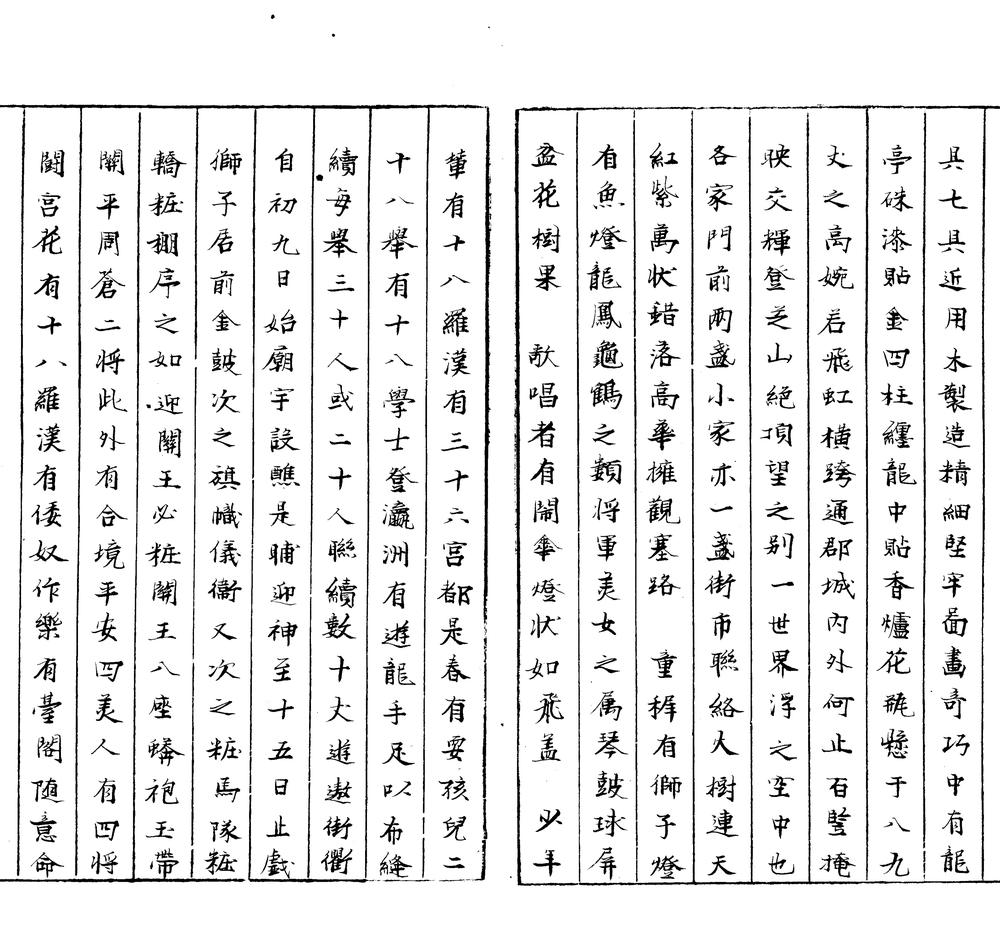 具七具近用木製造精細堅牢啚畫奇巧中有龍
亭硃漆貼金四柱纏龍中貼香爐花瓶懸于八九
丈之高婉若飛虹橫跨通郡城內外何止百竪掩
映交輝登芝山絕頂望之别一世界浮之空中也
各家門前兩盞小家亦一盞街市聯絡火樹連天
紅紫萬狀錯落高擎擁觀塞路　童穉有獅子燈
有魚燈龍鳳龜鶴之類將軍美女之属琴鼓球屏
盆花樹果　歌唱者有鬧傘燈狀如飛盖　少年
輩有十八羅漢有三十六宮都是春有耍孩兒二
十八舉有十八學士登瀛洲有遊龍手足以布縫
續每舉三十人或二十人聯續數十丈遊遨街衢
自初九日始廟宇設醮是晡迎神至十五日止戯
獅子居前金鼓次之旗幟儀衛又次之粧馬隊粧
轎粧棚序之如迎關王必粧關王八座蟒袍玉帶
關平周蒼二將此外有合境平安四美人有四將
閗宮花有十八羅漢有倭奴作樂有臺閣随意命